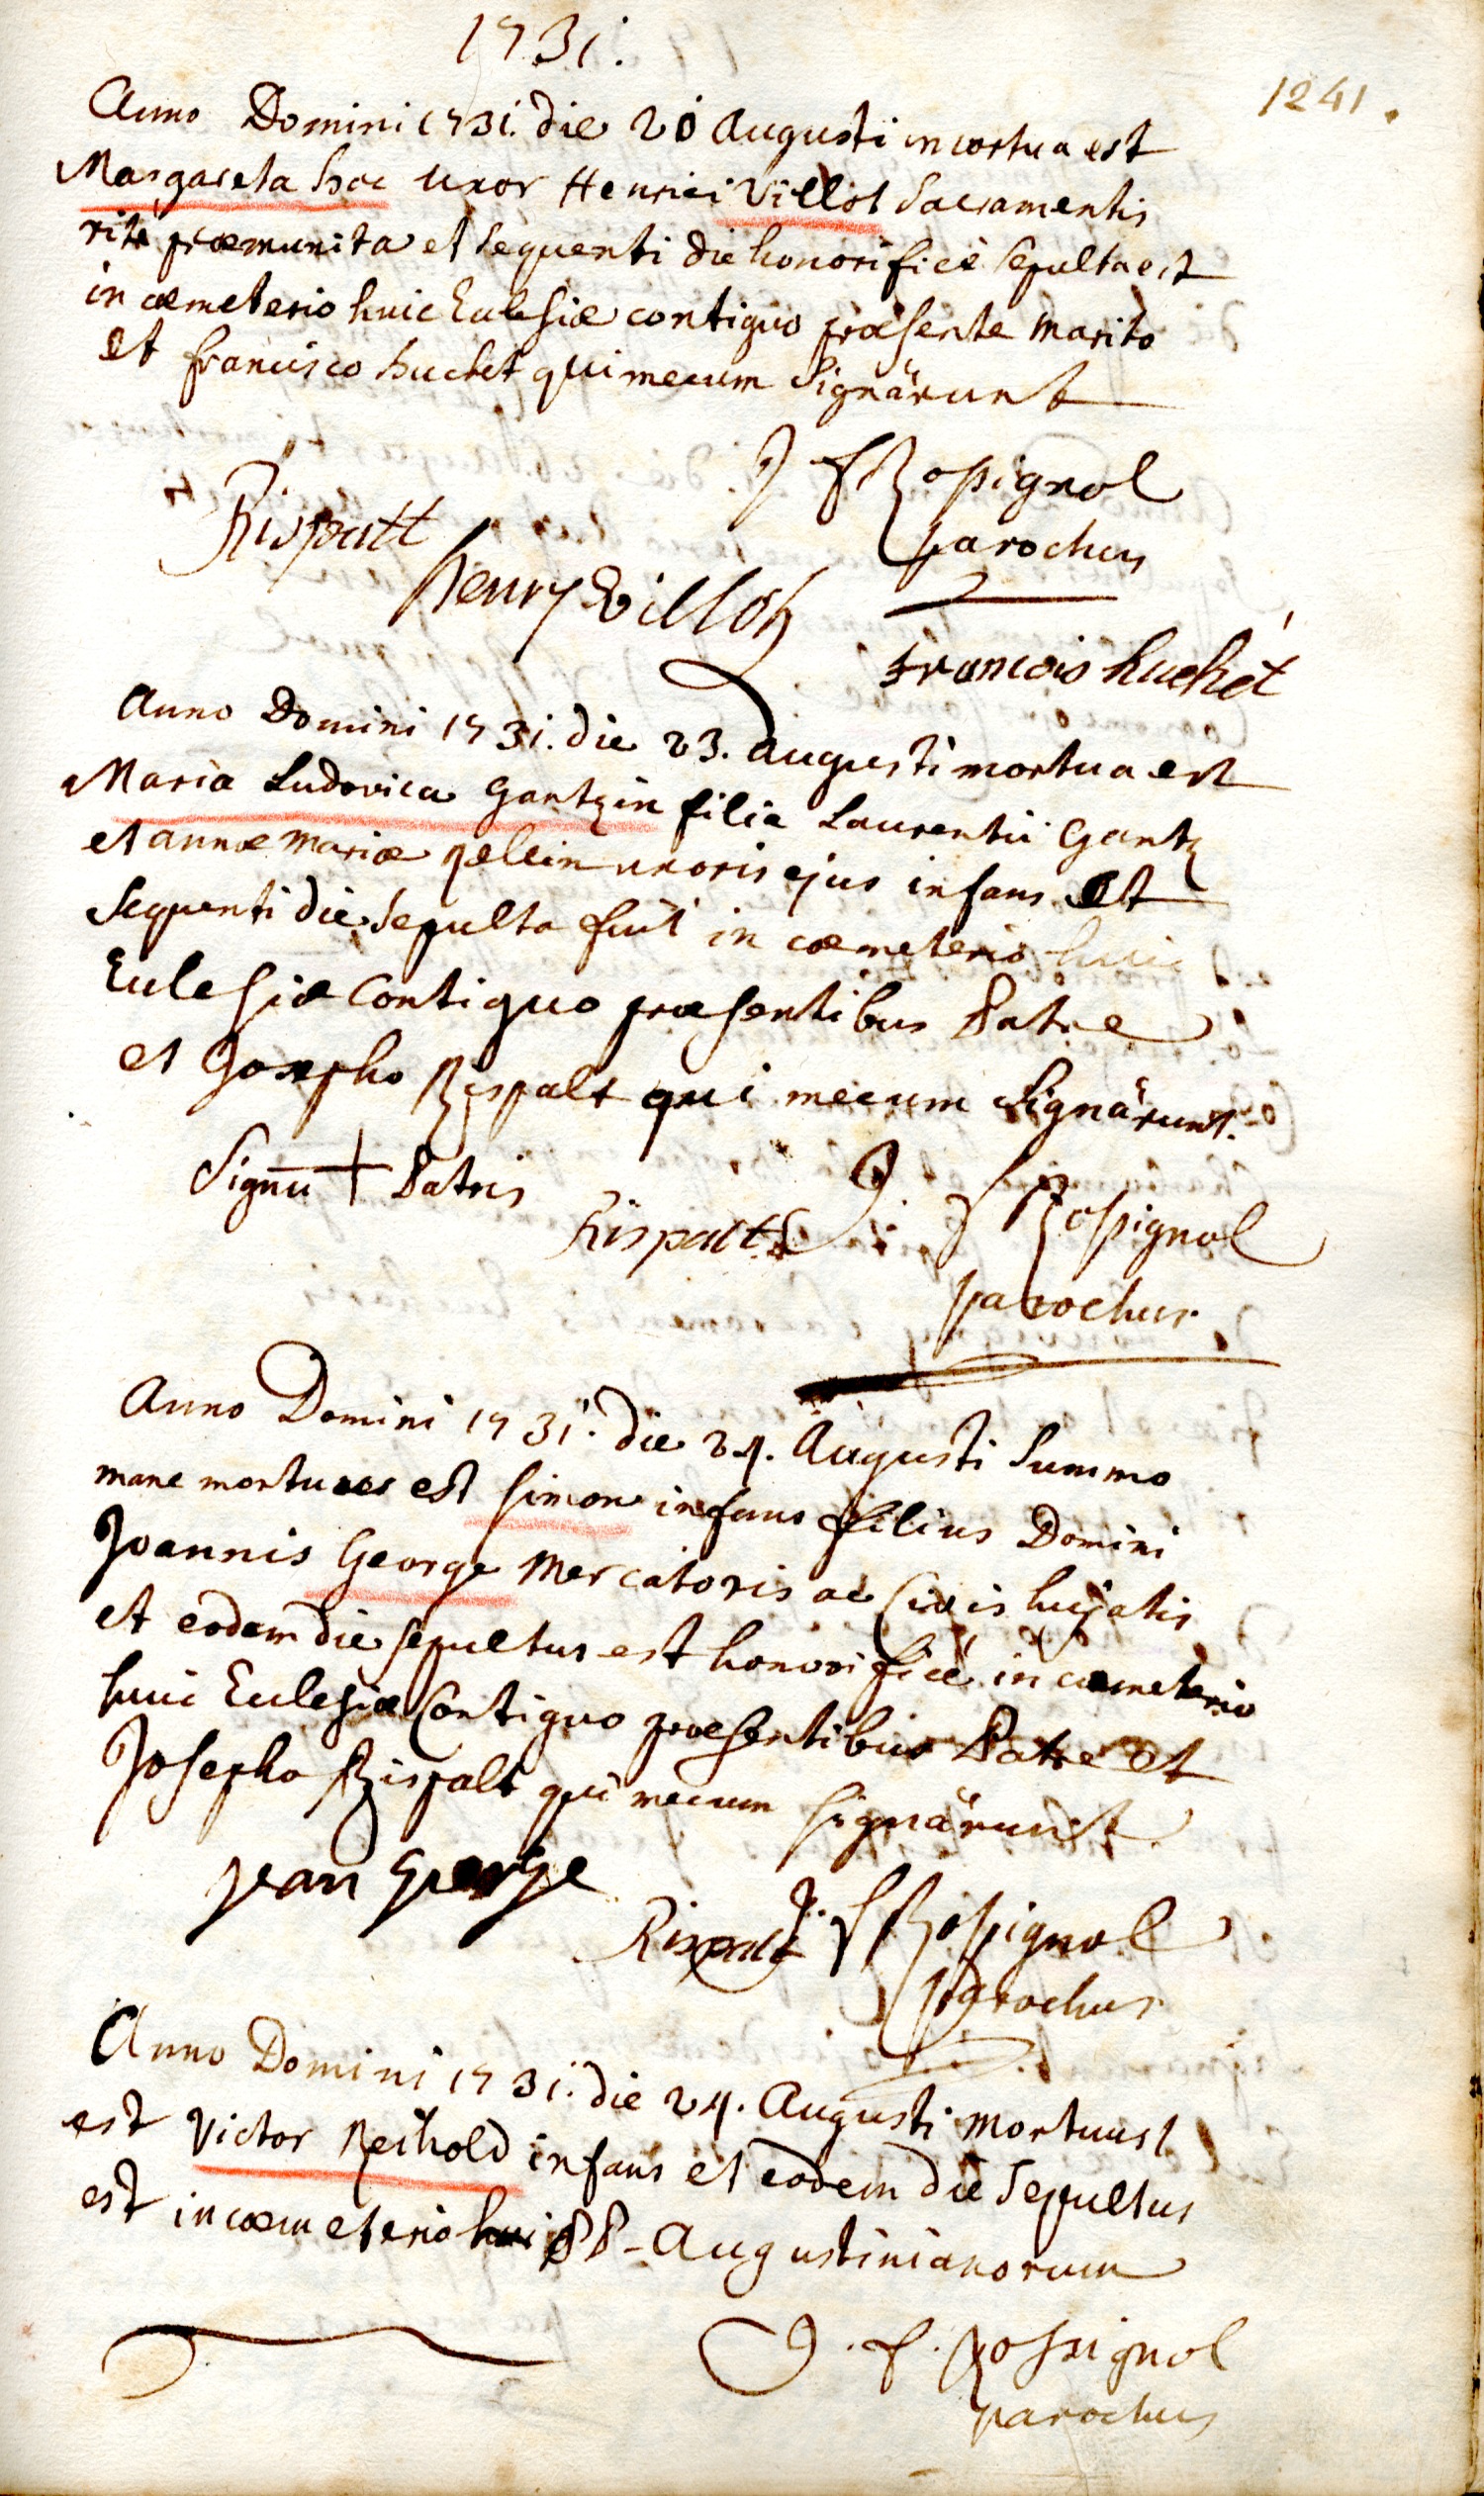 1731.
1241.
Anno Domini 1731. die 20 Augusti mortua est
Margareta hoc uxor Henrici Villot Sacramentis
ritè præmunita et sequenti die honorificè sepulta est
in cœmeterio huic Ecclesiæ contiguo præsente marito
et francisco huchet qui mecum signârunt
J f Rossignol
parochus
Rispalt
henry Villoh
francois huchét
Anno Domini 1731. die 23. augusti mortua est
Maria Ludovica Gantzin filia Laurentii Gantz
et annæ mariæ uxoris ejus infans et
sequenti die sepulta fuit in cœmeterio huic
Ecclesiæ contiguo præsentibus Patre
et Josepho Rispalt qui mecum signârunt.
Signū + Patris
Rispalt
J. f Rossignol
parochus
Anno Domini 1731. die 24. Augusti summo
mane mortuus est simon infans filius Domini
Joannis George Mercatoris ac Civis hujatis
et eodem die sepultus est honorificè in cœmeterio
huic Ecclesiæ Contiguo præsentibus Patre et
Josepho Rispalt qui mecum signârunt
jean George
Rispalt
J. f Rossignol
parochus
Anno Domini 1731. die 24. Augusti mortuus
est Victor Reihold infans et eodem die sepultus
est in cœmeterio PP. Augustinianorum
J. f. Rossignol
parochus